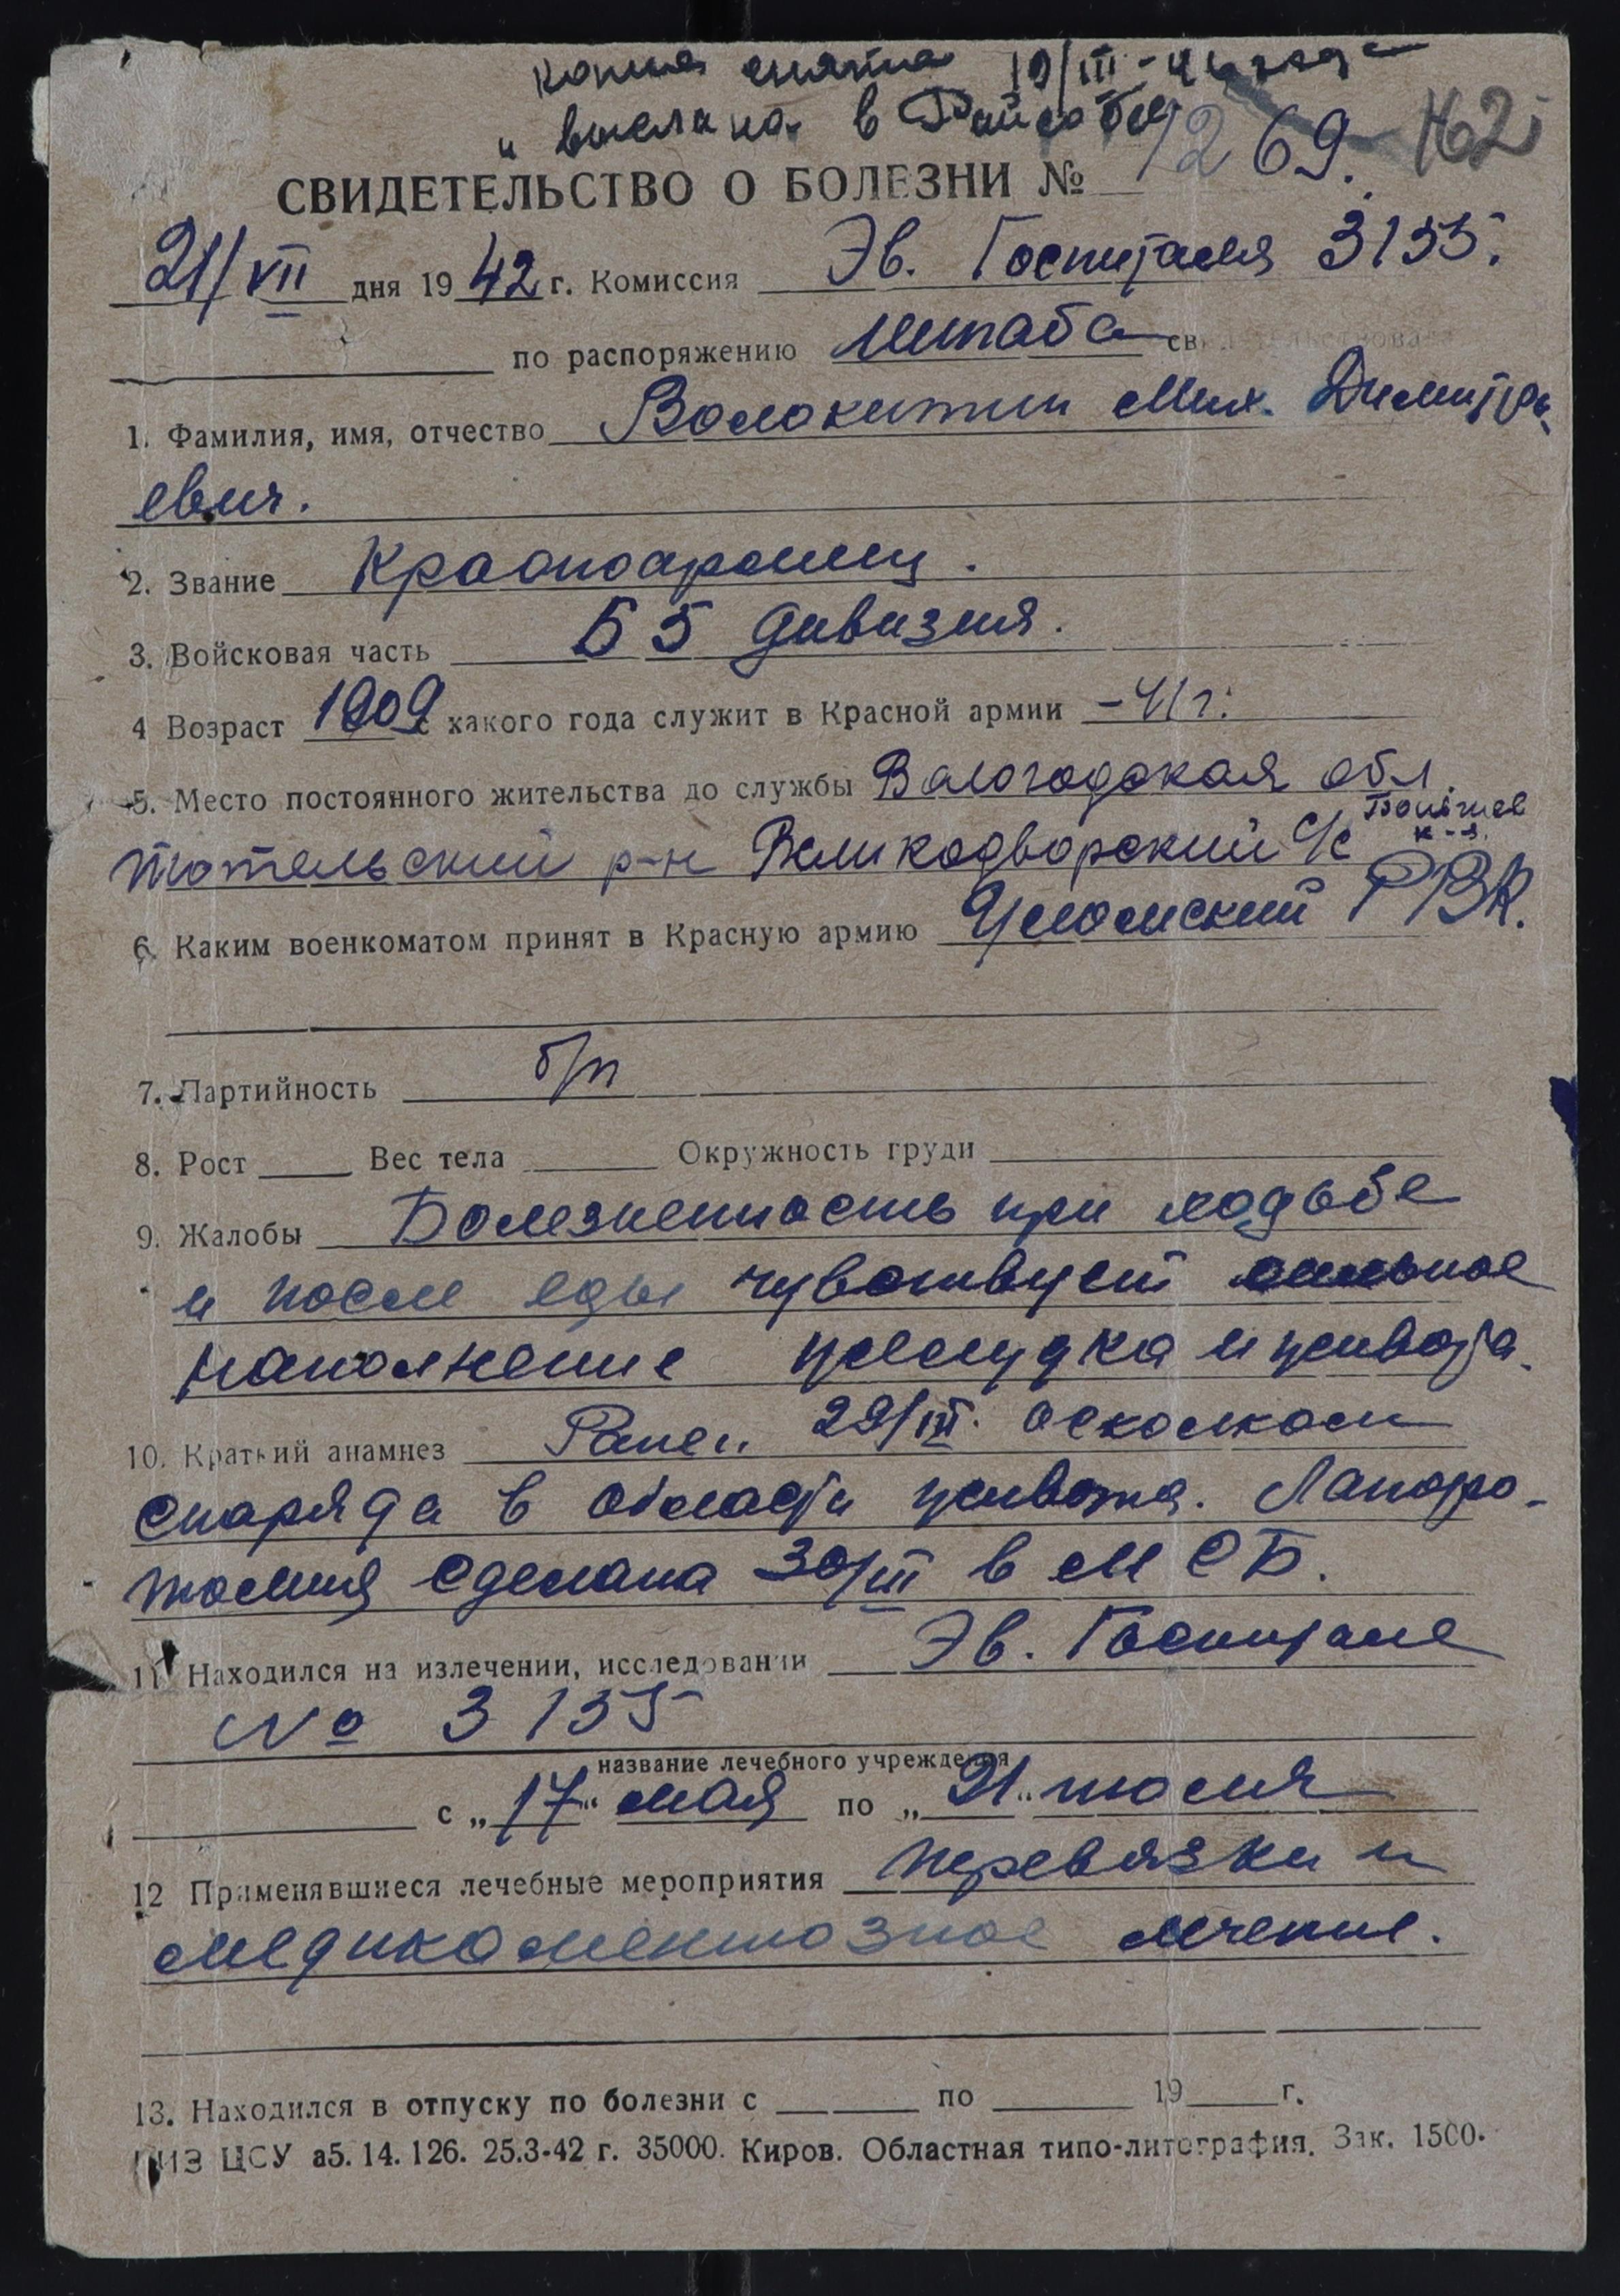 копия снята 19/III-44 года
и выслана в Райсобес
1269. 162
СВИДЕТЕЛЬСТВО О БОЛЕЗНИ №
21/VII дня 1942 г. Комиссия Эв. Госпиталя 3155.
по распоряжению Штаба
1. Фамилия, имя, отчество Волокитин Мих. Димитри-
евич.
2. Звание Красноармеец.
3. Войсковая часть Б 5 дивизия.
4 Возраст 1909 с какого года служит в Красной армии -41 г.
5. Место постоянного жительства до службы Вологодская обл.
Тотемьский р-н Великодворский с/с
6. Каким военкоматом принят в Красную армию РВК.
7. Партийность б/п
8. Рост Вес тела Окружность груди
9. Жалобы Болезненность при ходьбе
и после еды чувствует сильное
наполнение желудка и живота.
10. Краткий анамнез Ранен 29/III. осколком
снаряда в области живота. Лапаро-
томия сделана 30/III в М С Б.
11 Находился на излечении, исследовании Эв. Госпитале
№ 3155
название лечебного учреждения
с „17“ мая по „21“ июля
12 Применявшиеся лечебные мероприятия перевязки и
медикаментозное лечение.
13. Находился в отпуску по болезни с по 19 г.
ГИЗ ЦСУ а5. 14. 126. 25.3-42 г. 35000. Киров. Областная типо-литография. Зак. 1500.